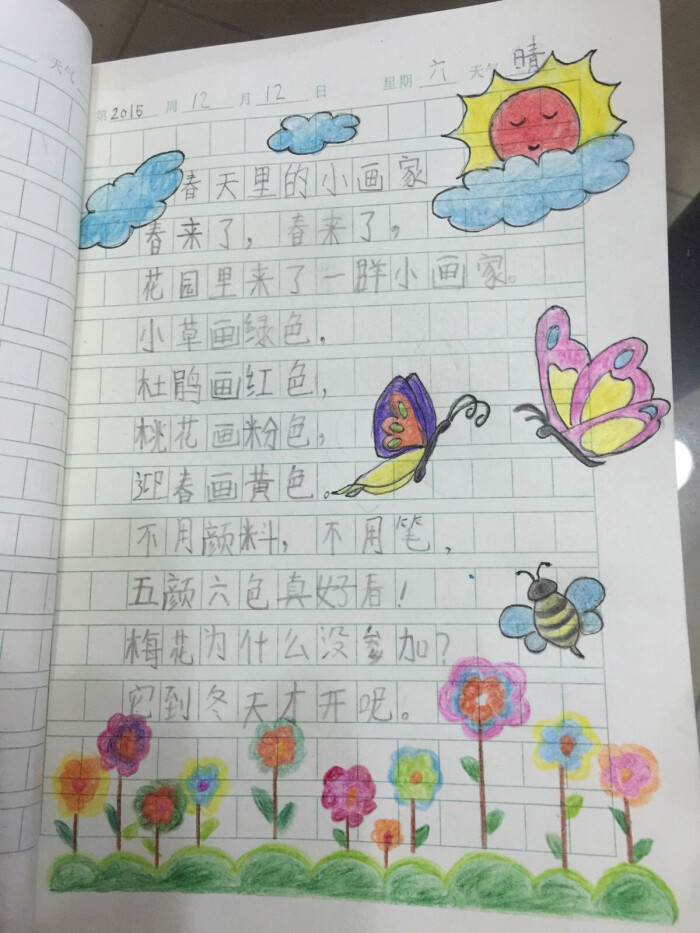 天气
第2015周12月12日 星期六 天气晴
春天里的小画家
春来了，春来了，
花园里来了一群小画家。
小草画绿色，
杜鹃画红色，
桃花画粉色，
迎春画黄色。
不用颜料，不用笔，
五颜六色真好看！
梅花为什么没参加？
它到冬天才开呢。